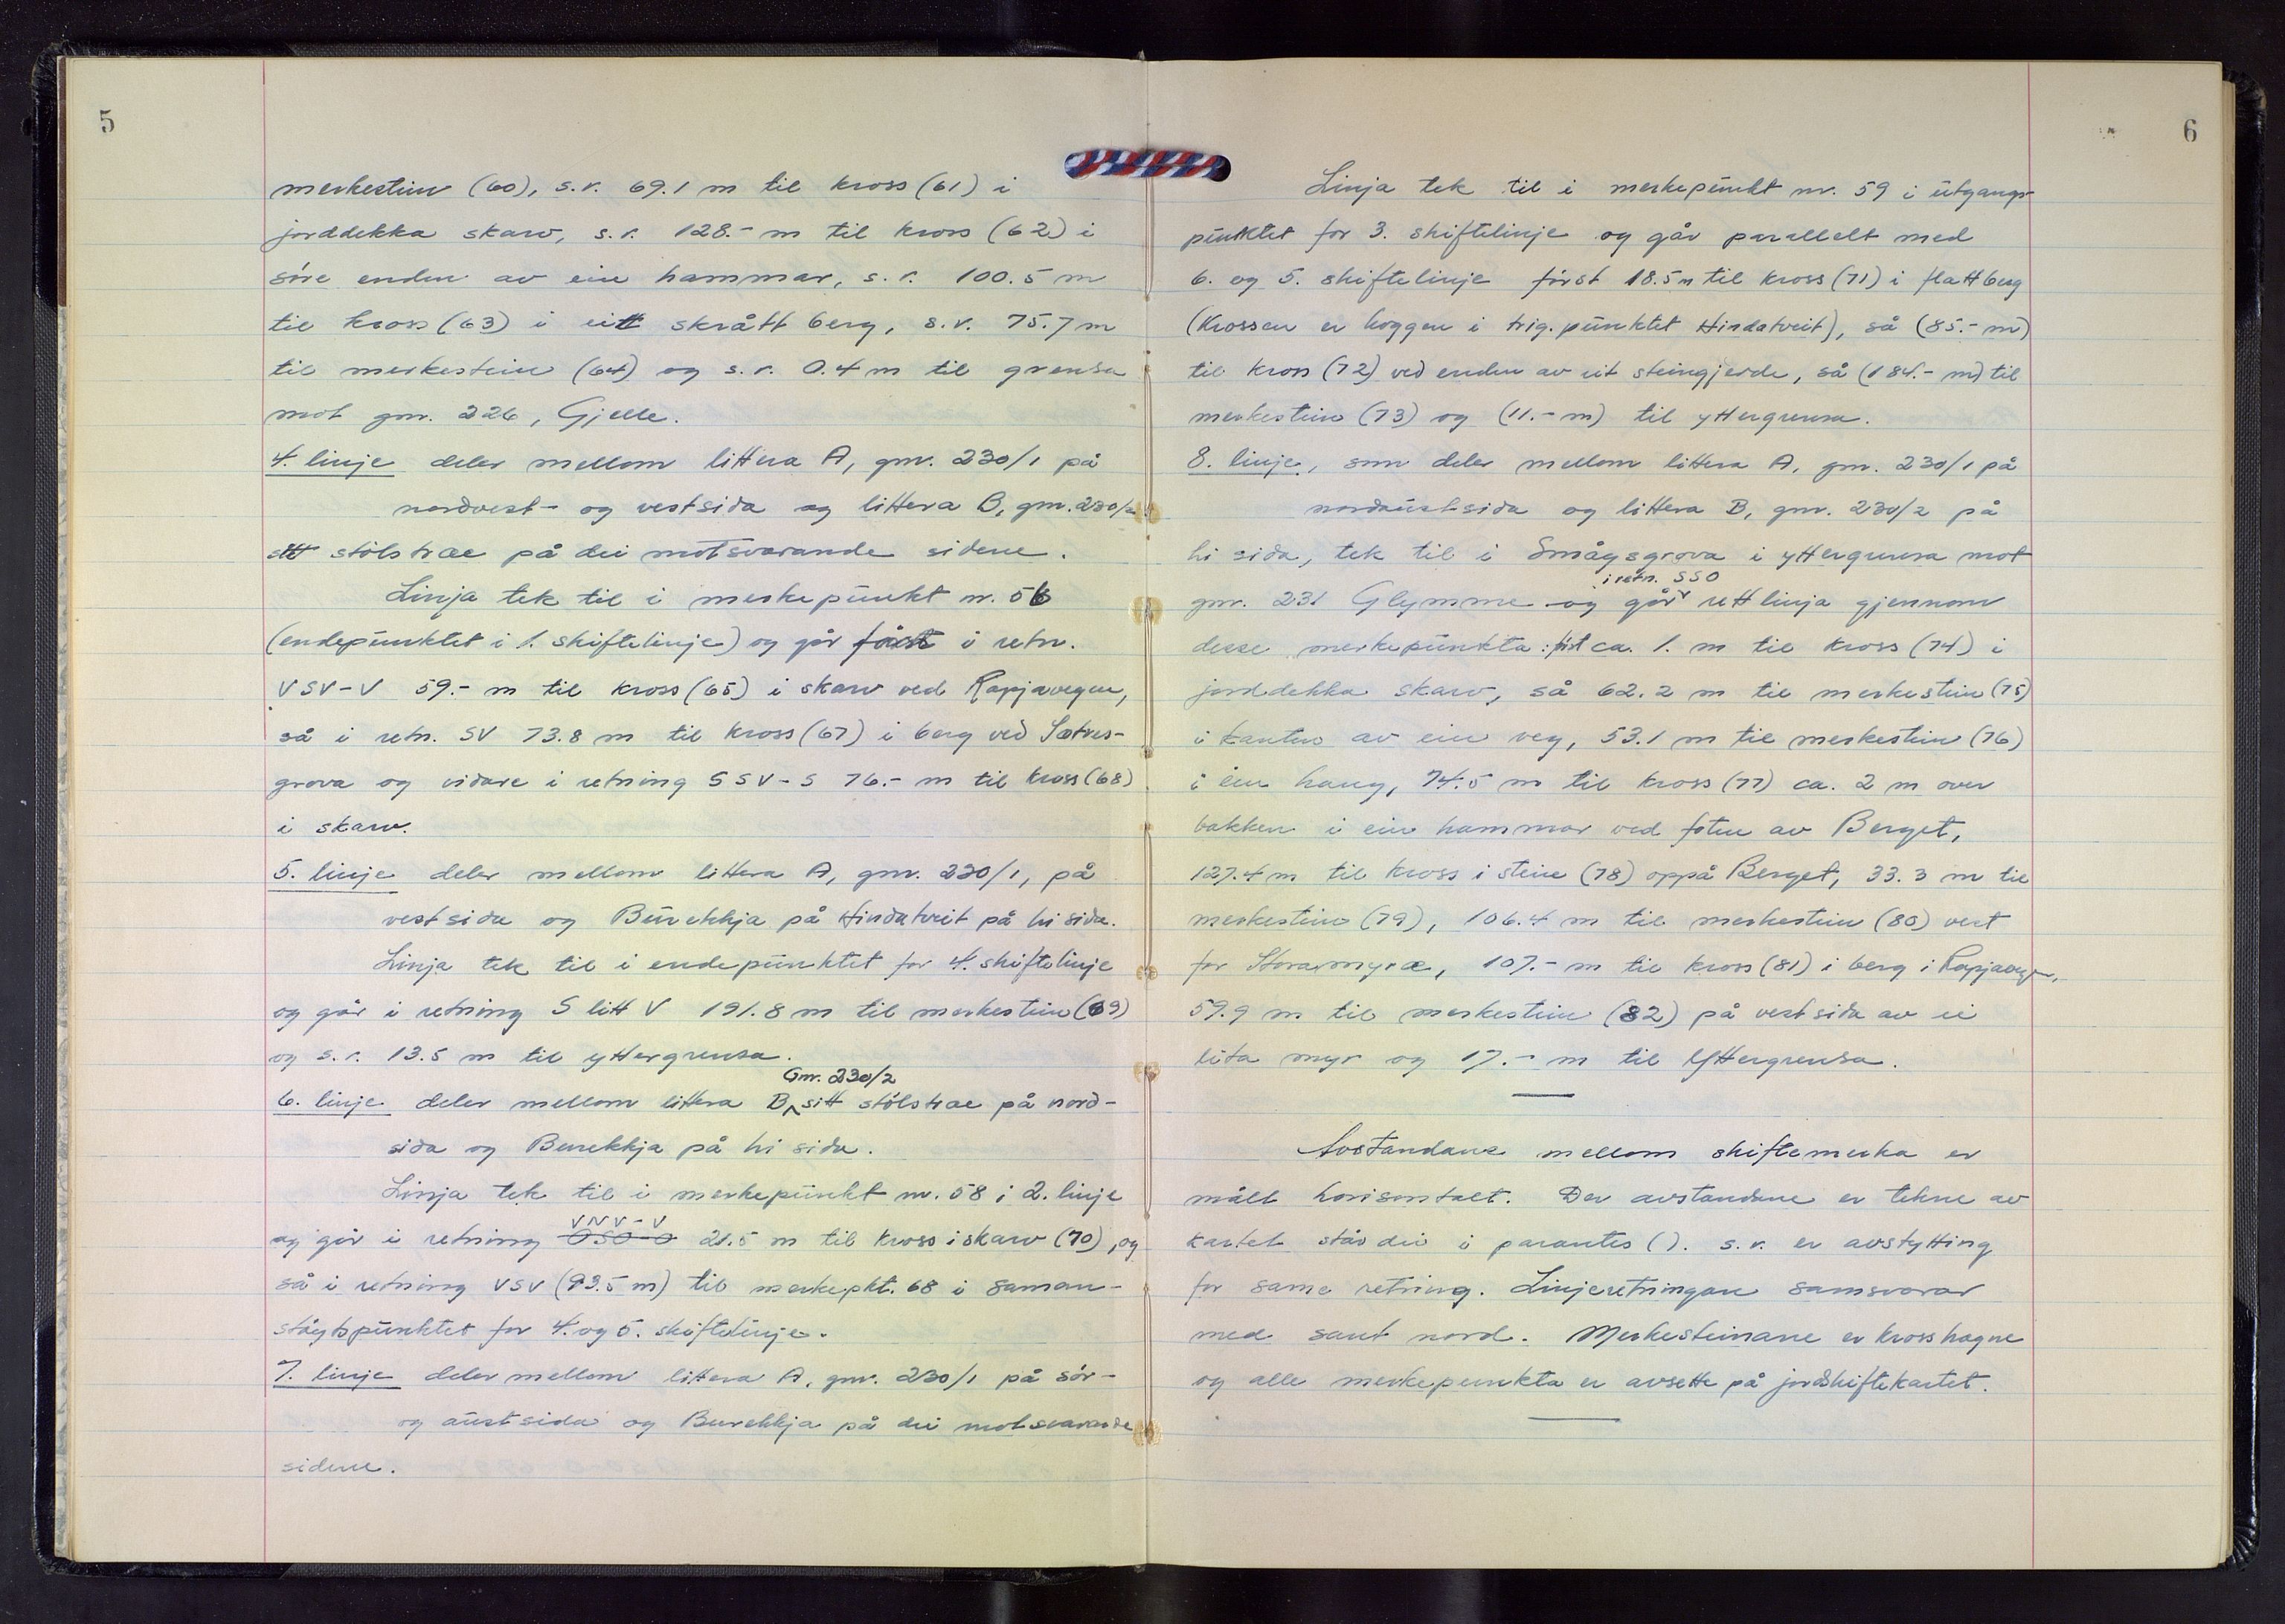 5
merkestein (60), s.r. 69.1 m til kross (61) i
jorddekka skarv, s.r. 128.- m til kross (62) i
søre enden av ein hammar, s.r. 100.5 m
til kross (63) i eitt skrått berg, s.r. 75.7 m
til merkestein (64) og s.r. 0.4 m til grensa
mot gnr. 226, Gjelle.
4. linje deler mellom littera A, gnr. 230/1 på
nordvest- og vestsida og littera B, gnr. 230/2
sitt stølstræ på dei motsvarande sidene.
Linja tek til i merkepunkt nr. 56
(endepunktet i 1. skiftelinje) og går først i retn.
VSV-V 59.- m til kross (65) i skarv ved Rapjavegen,
så i retn. SV 73.8 m til kross (67) i berg ved Sætres-
grova og vidare i retning SSV-S 76.- m til kross (68)
i skarv.
5. linje deler mellom littera A, gnr. 230/1, på
vestsida og Burekkja på Hindatveit på hi sida.
Linja tek til i endepunktet for 4. skiftelinje
og går i retning S litt V 191.8 m til merkestein (69)
og s.r. 13.5 m til yttergrensa.
Gnr. 230/2
6. linje deler mellom littera B, sitt stølstræ på nord-
sida og Burekkja på hi sida.
Linja tek til i merkepunkt nr. 58 i 2. linje
VNV-V
og går i retning OSO-O 21.5 m til kross i skarv (70), og
så i retning VSV (93.5 m) til merkepkt. 68 i saman-
støytspunktet for 4. og 5. skiftelinje.
7. linje deler mellom littera A, gnr. 230/1 på sør-
og austsida og Burekkja på dei motsvarande
sidene.
6
Linja tek til i merkepunkt nr. 59 i utgangs-
punktet for 3. skiftelinje og går parallelt med
6. og 5. skiftelinje først 18.5 m til kross (71) i flatt berg
(Krossen er hoggen i trig. punktet Hindatveit), så (85.- m)
til kross (72) ved enden av eit steingjerde, så (184.- m) til
merkestein (73) og (11.- m) til yttergrensa.
8. linje, som deler mellom littera A, gnr. 230/1 på
nordaustsida og littera B, gnr. 230/2 på
hi sida, tek til i Smågsgrova i yttergrensa mot
i retn. SSO
gnr. 231 Glymme og går rettlinja gjennom
desse merkepunkta: fyrst ca. 1. m til kross (74) i
jorddekka skarv, så 62.2 m til merkestein (75)
i kanten av ein veg, 53.1 m til merkestein (76)
i ein haug, 74.5 m til kross (77) ca. 2 m over
bakken i ein hammar ved foten av Berget,
127.4 m til kross i stein (78) oppå Berget, 33.3 m til
merkestein (79), 106.4 m til merkestein (80) vest
for Storamyræ, 107.- m til kross (81) i berg i Rapjavegen,
59.9 m til merkestein (82) på vestsida av ei
lita myr og 17.- m til yttergrensa.
Avstandane mellom skiftemerka er
målt horisontalt. Der avstandane er tekne av
kartet står dei i parantes (). s.r. er avstytting
for same retning. Linjeretningane samsvarar
med sant nord. Merkesteinane er krosshogne
og alle merkepunkta er avsette på jordskiftekartet.